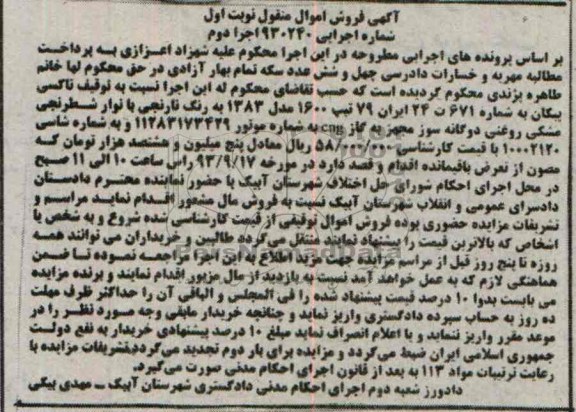 آگهی فروش اموال منقول نوبت اول
شماره اجرایی ۹۳۰۲۴۰ اجرا دوم
بر اساس پرونده های اجرایی مطروحه در این اجرا محکوم علیه شهزاد اعزازی به پرداخت
مطالبه مهریه و خسارات دادرسی چهل و شش عدد سکه تمام بهار آزادی در حق محکوم لها خانم
طاهره یژندی محکوم گردیده است که حسب تقاضای محکوم له این اجرا نسبت به توقیف تاکسی
پیکان به شماره ۶۷۱ ت ۲۴ ایران ۷۹ تیپ ۱۶۰۰ مدل ۱۳۸۳ به رنگ نارنجی با نوار شطرنجی
مشکی روغنی دوگانه سوز مجهز به گاز cng به شماره موتور ۱۱۲۸۳۱۷۳۴۲۹ و به شماره شاسی
۱۰۰۰۲۱۲۰ با قیمت کارشناسی ۵۸/۰۰۰/۰۰۰ ریال معادل پنج میلیون و هشتصد هزار تومان که
مصون از تعرض باقیمانده اقدام و قصد دارد در مورخه ۹۳/۹/۱۷ راس ساعت ۱۰ الی ۱۱ صبح
در محل اجرای احکام شورای حل اختلاف شهرستان آبیک با حضور نماینده محترم دادستان
دادسرای عمومی و انقلاب شهرستان آبیک نسبت به فروش مال مشعور اقدام نماید مراسم و
تشریفات مزایده حضوری بوده فروش اموال توقیفی از قیمت کارشناسی شده شروع و به شخص یا
اشخاص که بالاترین قیمت را پیشنهاد نمایند منتقل می گردد طالبین و خریداران می توانند همه
روزه تا پنج روز قبل از مراسم مزایده جهت مزید اطلاع به این اجرا مراجعه نموده تا ضمن
هماهنگی لازم که به عمل خواهد آمد نسبت به بازدید از مال مزبور اقدام نمایند و برنده مزایده
می بایست بدوا ۱۰ درصد قیمت پیشنهاد شده را فی المجلس و الباقی آن را حداکثر ظرف مهلت
ده روز به حساب سپرده دادگستری واریز نماید و چنانچه خریدار مابقی وجه مورد نظر را در
موعد مقرر واریز ننماید و یا اعلام انصراف نماید مبلغ ۱۰ درصد پیشنهادی خریدار به نفع دولت
جمهوری اسلامی ایران ضبط می گردد و مزایده برای بار دوم تجدید می گردد.تشریفات مزایده با
رعایت ترتیبات مواد ۱۱۳ به بعد از قانون اجرای احکام مدنی صورت می گیرد.
دادورز شعبه دوم اجرای احکام مدنی دادگستری شهرستان آبیک ـ مهدی بیگی